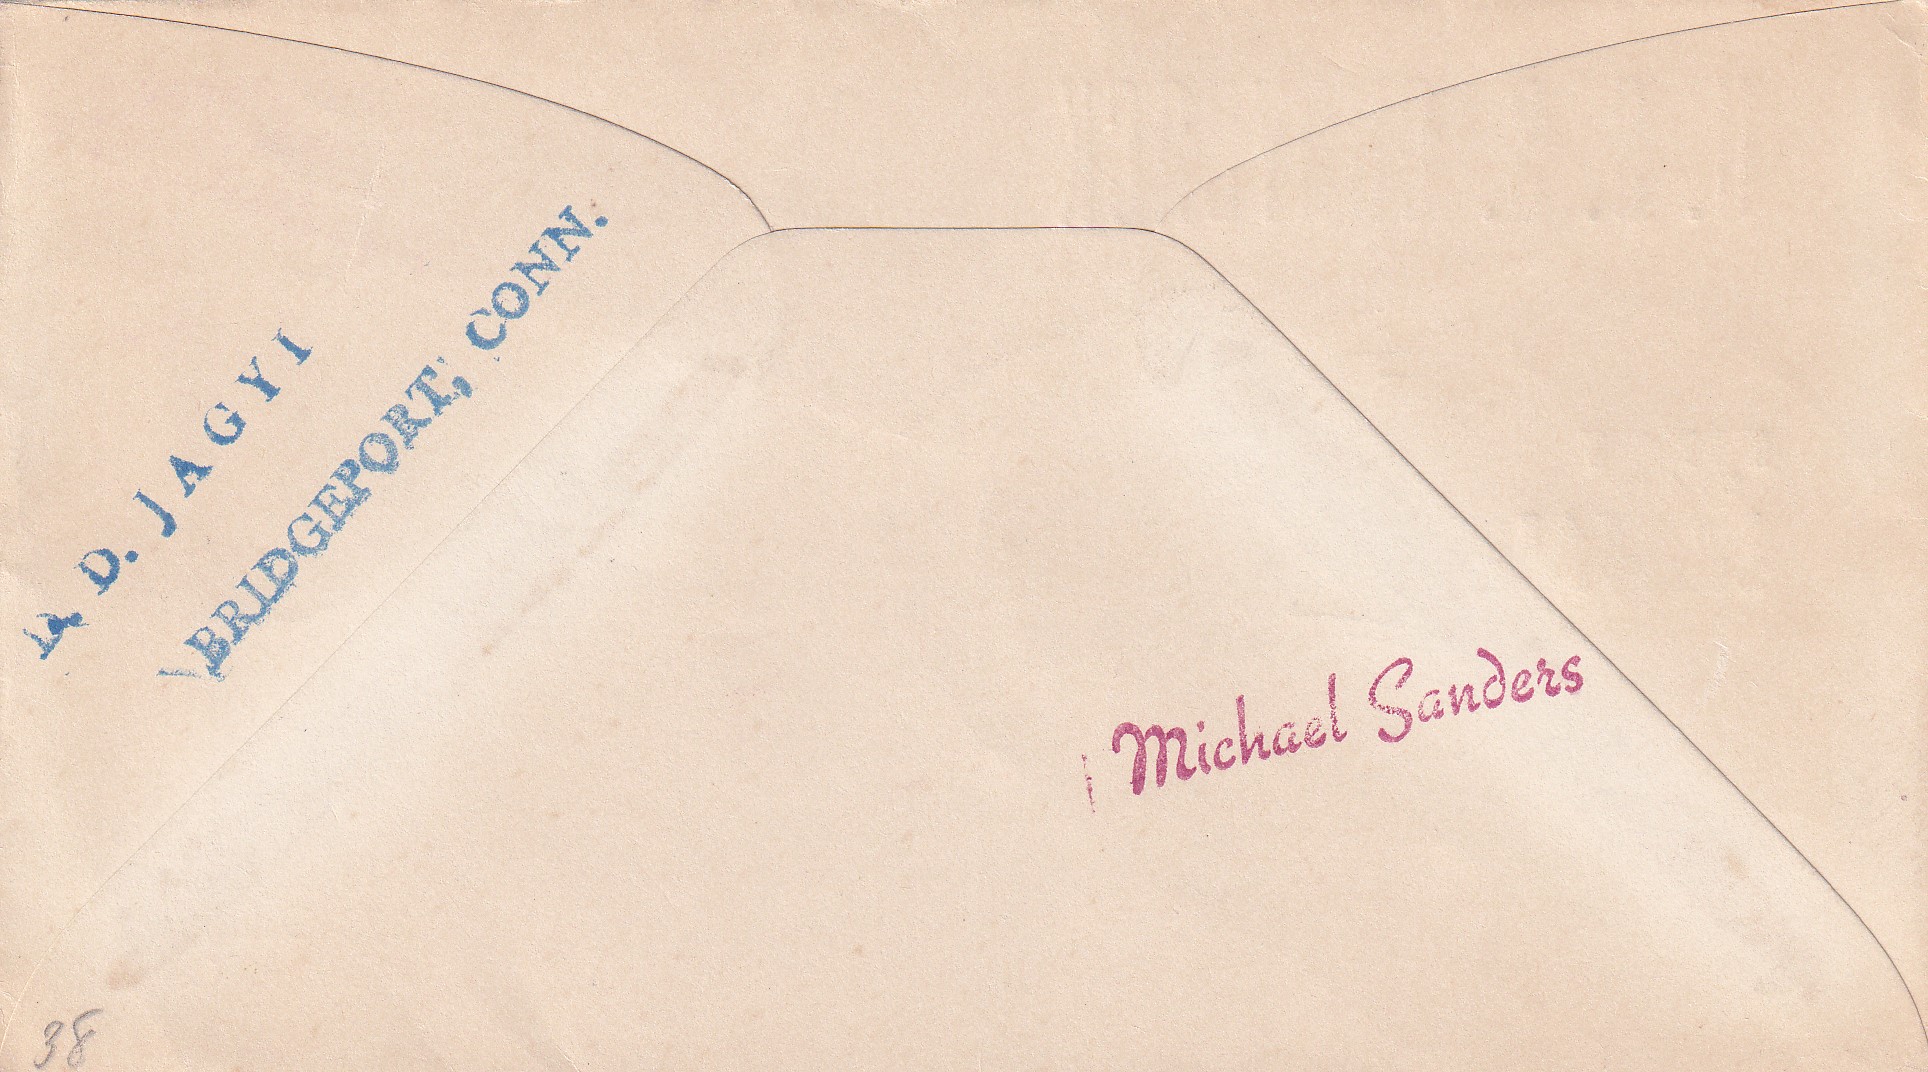 D. JAGYI
BRIDGEPORT, CONN.
Michael Sanders
38